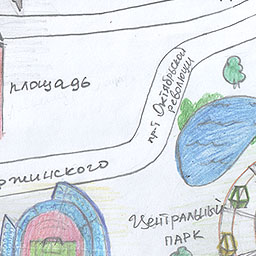 площадь
пр-т Октябрьской
революции
ржинского
Центральный
парк